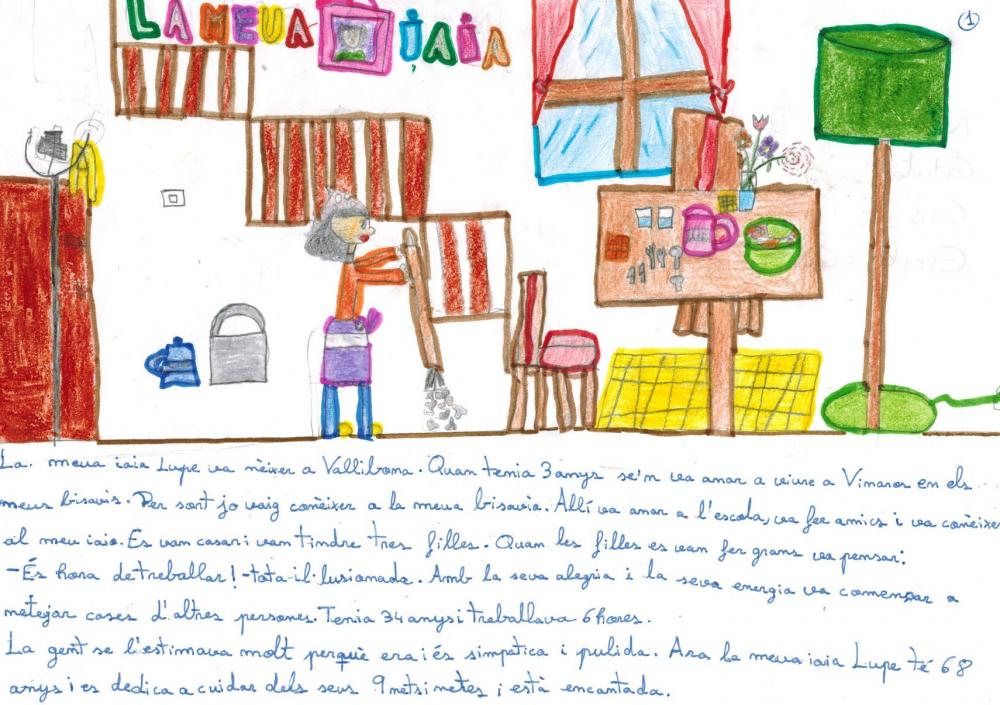 LA MEUA IAIA
1
La meua iaia Lupe va nèixer a Vallibona. Quan tenia 3 anys se'm va anar a viure a Vinaros en els
meus bisavis. Per sort jo vaig conèixer a la meua bisavia. Allí va anar a l'escola, va fer amics i va conèixer
al meu iaio. Es vam casar i vam tindre tres filles. Quan les filles es vam fer grans va pensar:
-És hora de treballar! -tota il·lusionada. Amb la seva alegria i la seva energia va començar a
netejar cases d'altres persones. Tenia 34 anys i treballava 6 hores.
La gent se l'estimava molt perquè era i és simpàtica i pulida. Ara la meua iaia Lupe té 68
anys i es dedica a cuidar dels seus 9 nets i netes i està encantada.